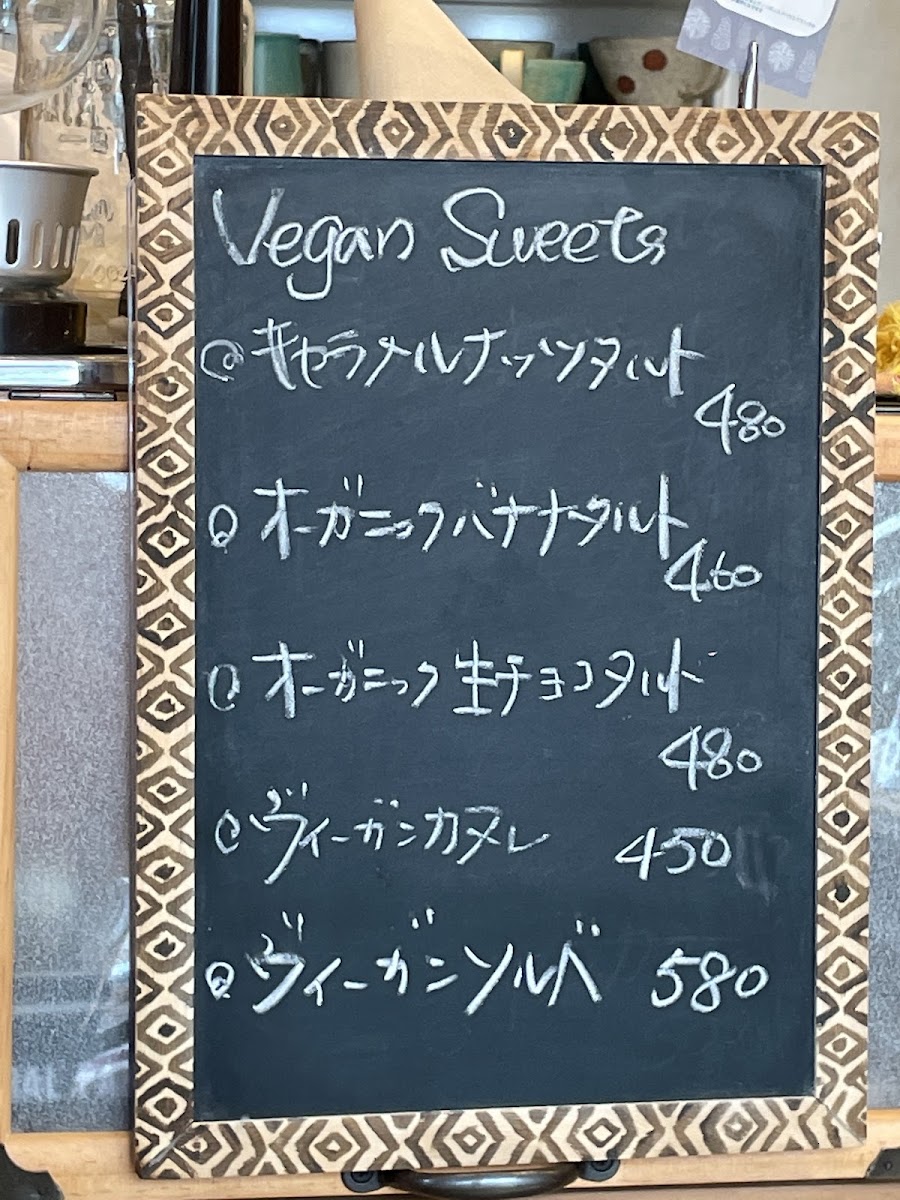 Vegan Sweets
キャラメルナッツタルト
480
オーガニックバナナタルト
460
オーガニック生チョコタルト
480
ヴィーガンカヌレ 450
ヴィーガンソルベ 580